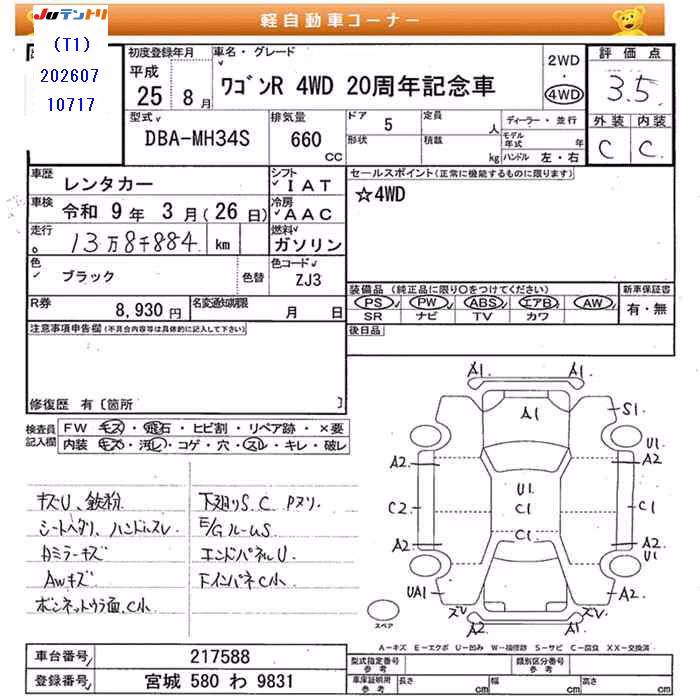 JUテントリ
軽自動車コーナー
(T1)
202607
10717
初度登録年月
平成
25 8月
車名・グレード
ワゴンR 4WD 20周年記念車
2WD
・
4WD
評価点
3.5
外装 内装
C C
型式
DBA-MH34S
排気量
660
CC
ドア 5
定員 人
形状
積載 kg
ディーラー・並行
モデル年式 年
ハンドル 左・右
車歴
レンタカー
シフト
IAT
車検
令和 9年 3月(26日)
冷房
AAC
走行
13万8千884 km
燃料
ガソリン
色
ブラック
色替
色コード
ZJ3
R券
8,930円
名変通知期限
月 日
セールスポイント(正常に機能するものに限ります)
☆4WD
装備品 (純正品に限り○をつけてください)
PS PW ABS エアB AW
SR ナビ TV カワ
新車保証書
有・無
後日品
注意事項申告欄(不具合内容等は具体的に記入して下さい)
修復歴 有〔箇所 〕
検査員記入欄
FW キズ・飛石・ヒビ割・リペア跡・×要
内装 キズ・汚レ・コゲ・穴・スレ・キレ・破レ
キズU、鉄粉
シートヘタリ、ハンドルスレ
Aミラーキズ
AWキズ
ボンネットウラ面、C小
下廻りS、C Pヌリ
E/GルームS
エンドパネルU
FインパネC小
A1 A1
A1
S1
U1
A2 A2
U1
C1
C2 C1
C1
A2 A2
U1
UA1 A2
ズV ズV
A2 A2
スペア
A-キズ E-エクボ U-凹み W-補修跡 S-サビ C-腐食 XX-交換済
車台番号
217588
登録番号
宮城 580 わ 9831
型式指定番号
参考
類別区分番号
参考
車庫証明用
参考
長さ cm
幅 cm
高さ cm